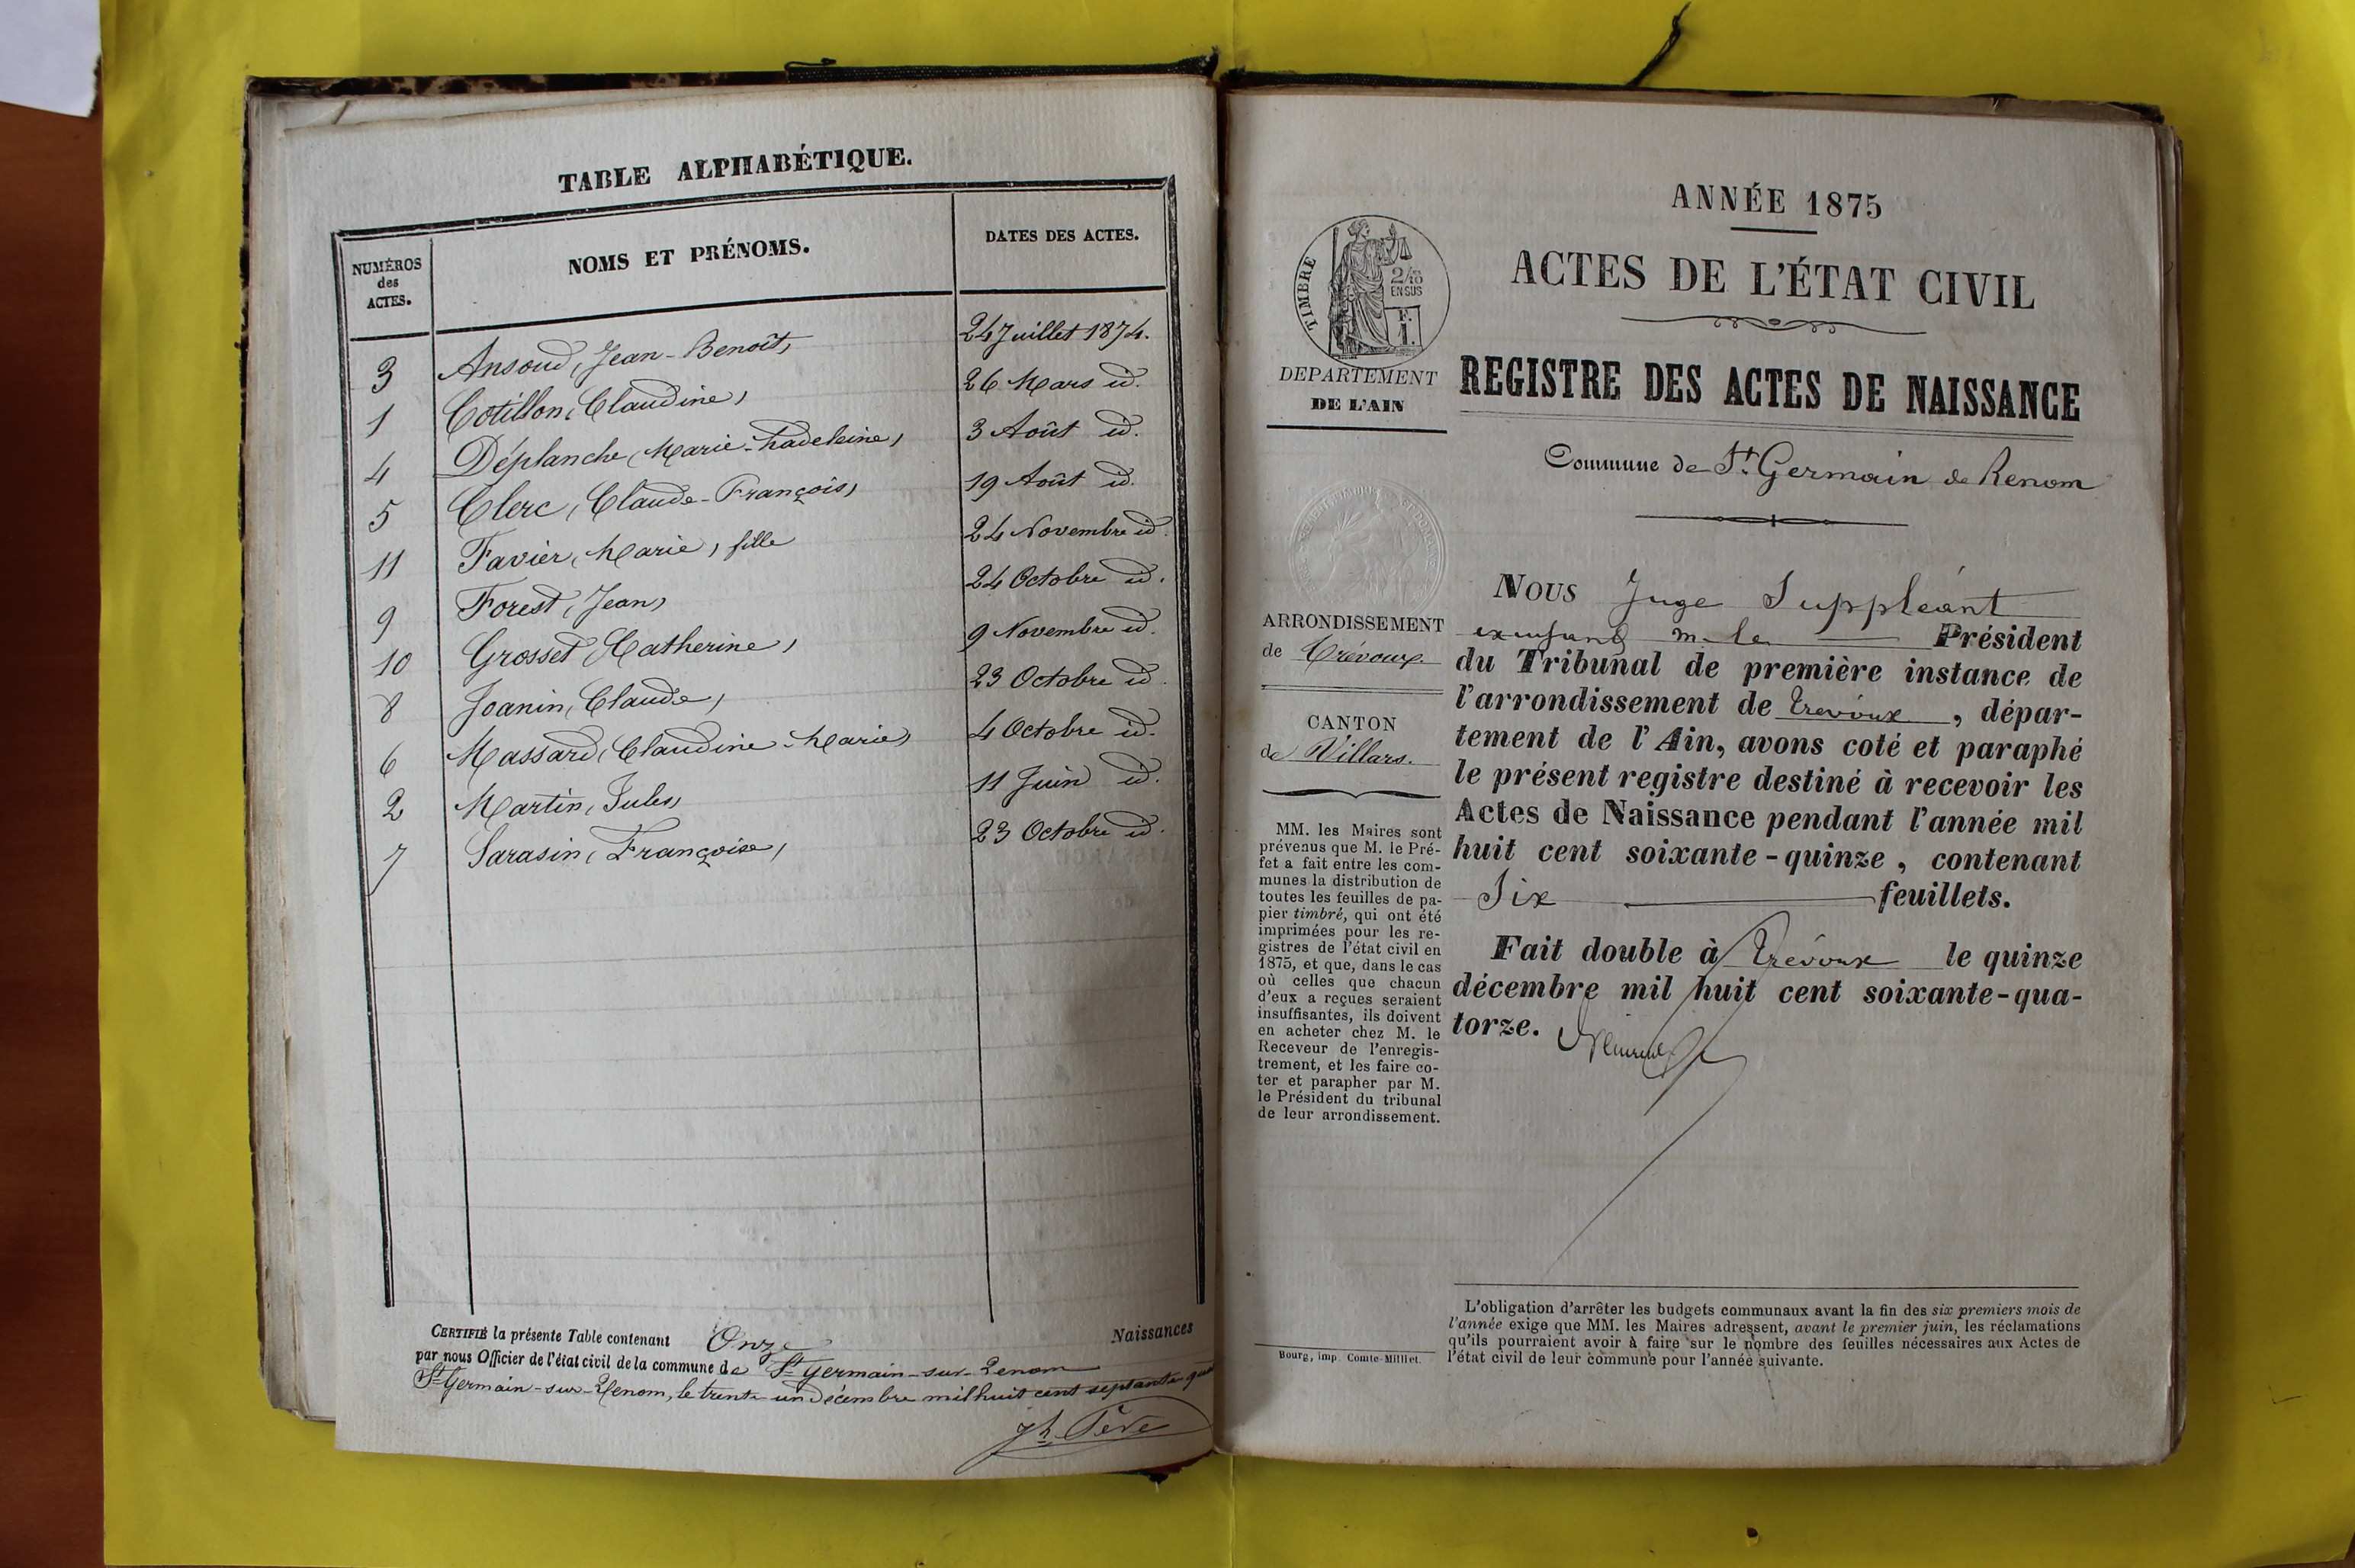 TABLE ALPHABÉTIQUE.
NUMÉROS des ACTES. NOMS ET PRÉNOMS. DATES DES ACTES.
3 Ansoud, Jean-Benoît, 24 Juillet 1874.
1 Cotillon, Claudine, 26 Mars id.
4 Déplanche, Marie-Madeleine, 3 Août id.
5 Clerc, Claude-François, 19 Août id.
11 Favier, Marie, fille 24 Novembre id.
9 Forest, Jean, 24 Octobre id.
10 Grosset, Catherine, 9 Novembre id.
8 Joanin, Claude, 23 Octobre id.
6 Massard, Claudine-Marie, 4 Octobre id.
2 Martin, Jules, 11 Juin id.
7 Sarasin, Françoise, 23 Octobre id.
CERTIFIÉ la présente Table contenant Onze Naissances
par nous Officier de l'état civil de la commune de St Germain-sur-Renom
St Germain-sur-Renom, le trente-un Décembre mil huit cent septante
ANNÉE 1875
ACTES DE L'ÉTAT CIVIL
REGISTRE DES ACTES DE NAISSANCE
Commune de St Germain de Renom
TIMBRE
2/10
EN SUS
F.
1.
DÉPARTEMENT
DE L'AIN
ARRONDISSEMENT
de Trévoux.
CANTON
de Villars.
MM. les Maires sont
prévenus que M. le Pré-
fet a fait entre les com-
munes la distribution de
toutes les feuilles de pa-
pier timbré, qui ont été
imprimées pour les re-
gistres de l'état civil en
1875, et que, dans le cas
où celles que chacun
d'eux a reçues seraient
insuffisantes, ils doivent
en acheter chez M. le
Receveur de l'enregis-
trement, et les faire co-
ter et parapher par M.
le Président du tribunal
de leur arrondissement.
Bourg, imp. Comte-Milliet.
NOUS Juge Suppléant
m. le Président
du Tribunal de première instance de
l'arrondissement de Trévoux, dépar-
tement de l'Ain, avons coté et paraphé
le présent registre destiné à recevoir les
Actes de Naissance pendant l'année mil
huit cent soixante-quinze, contenant
Six feuillets.
Fait double à Trévoux le quinze
décembre mil huit cent soixante-qua-
torze.
L'obligation d'arrêter les budgets communaux avant la fin des six premiers mois de
l'année exige que MM. les Maires adressent, avant le premier juin, les réclamations
qu'ils pourraient avoir à faire sur le nombre des feuilles nécessaires aux Actes de
l'état civil de leur commune pour l'année suivante.